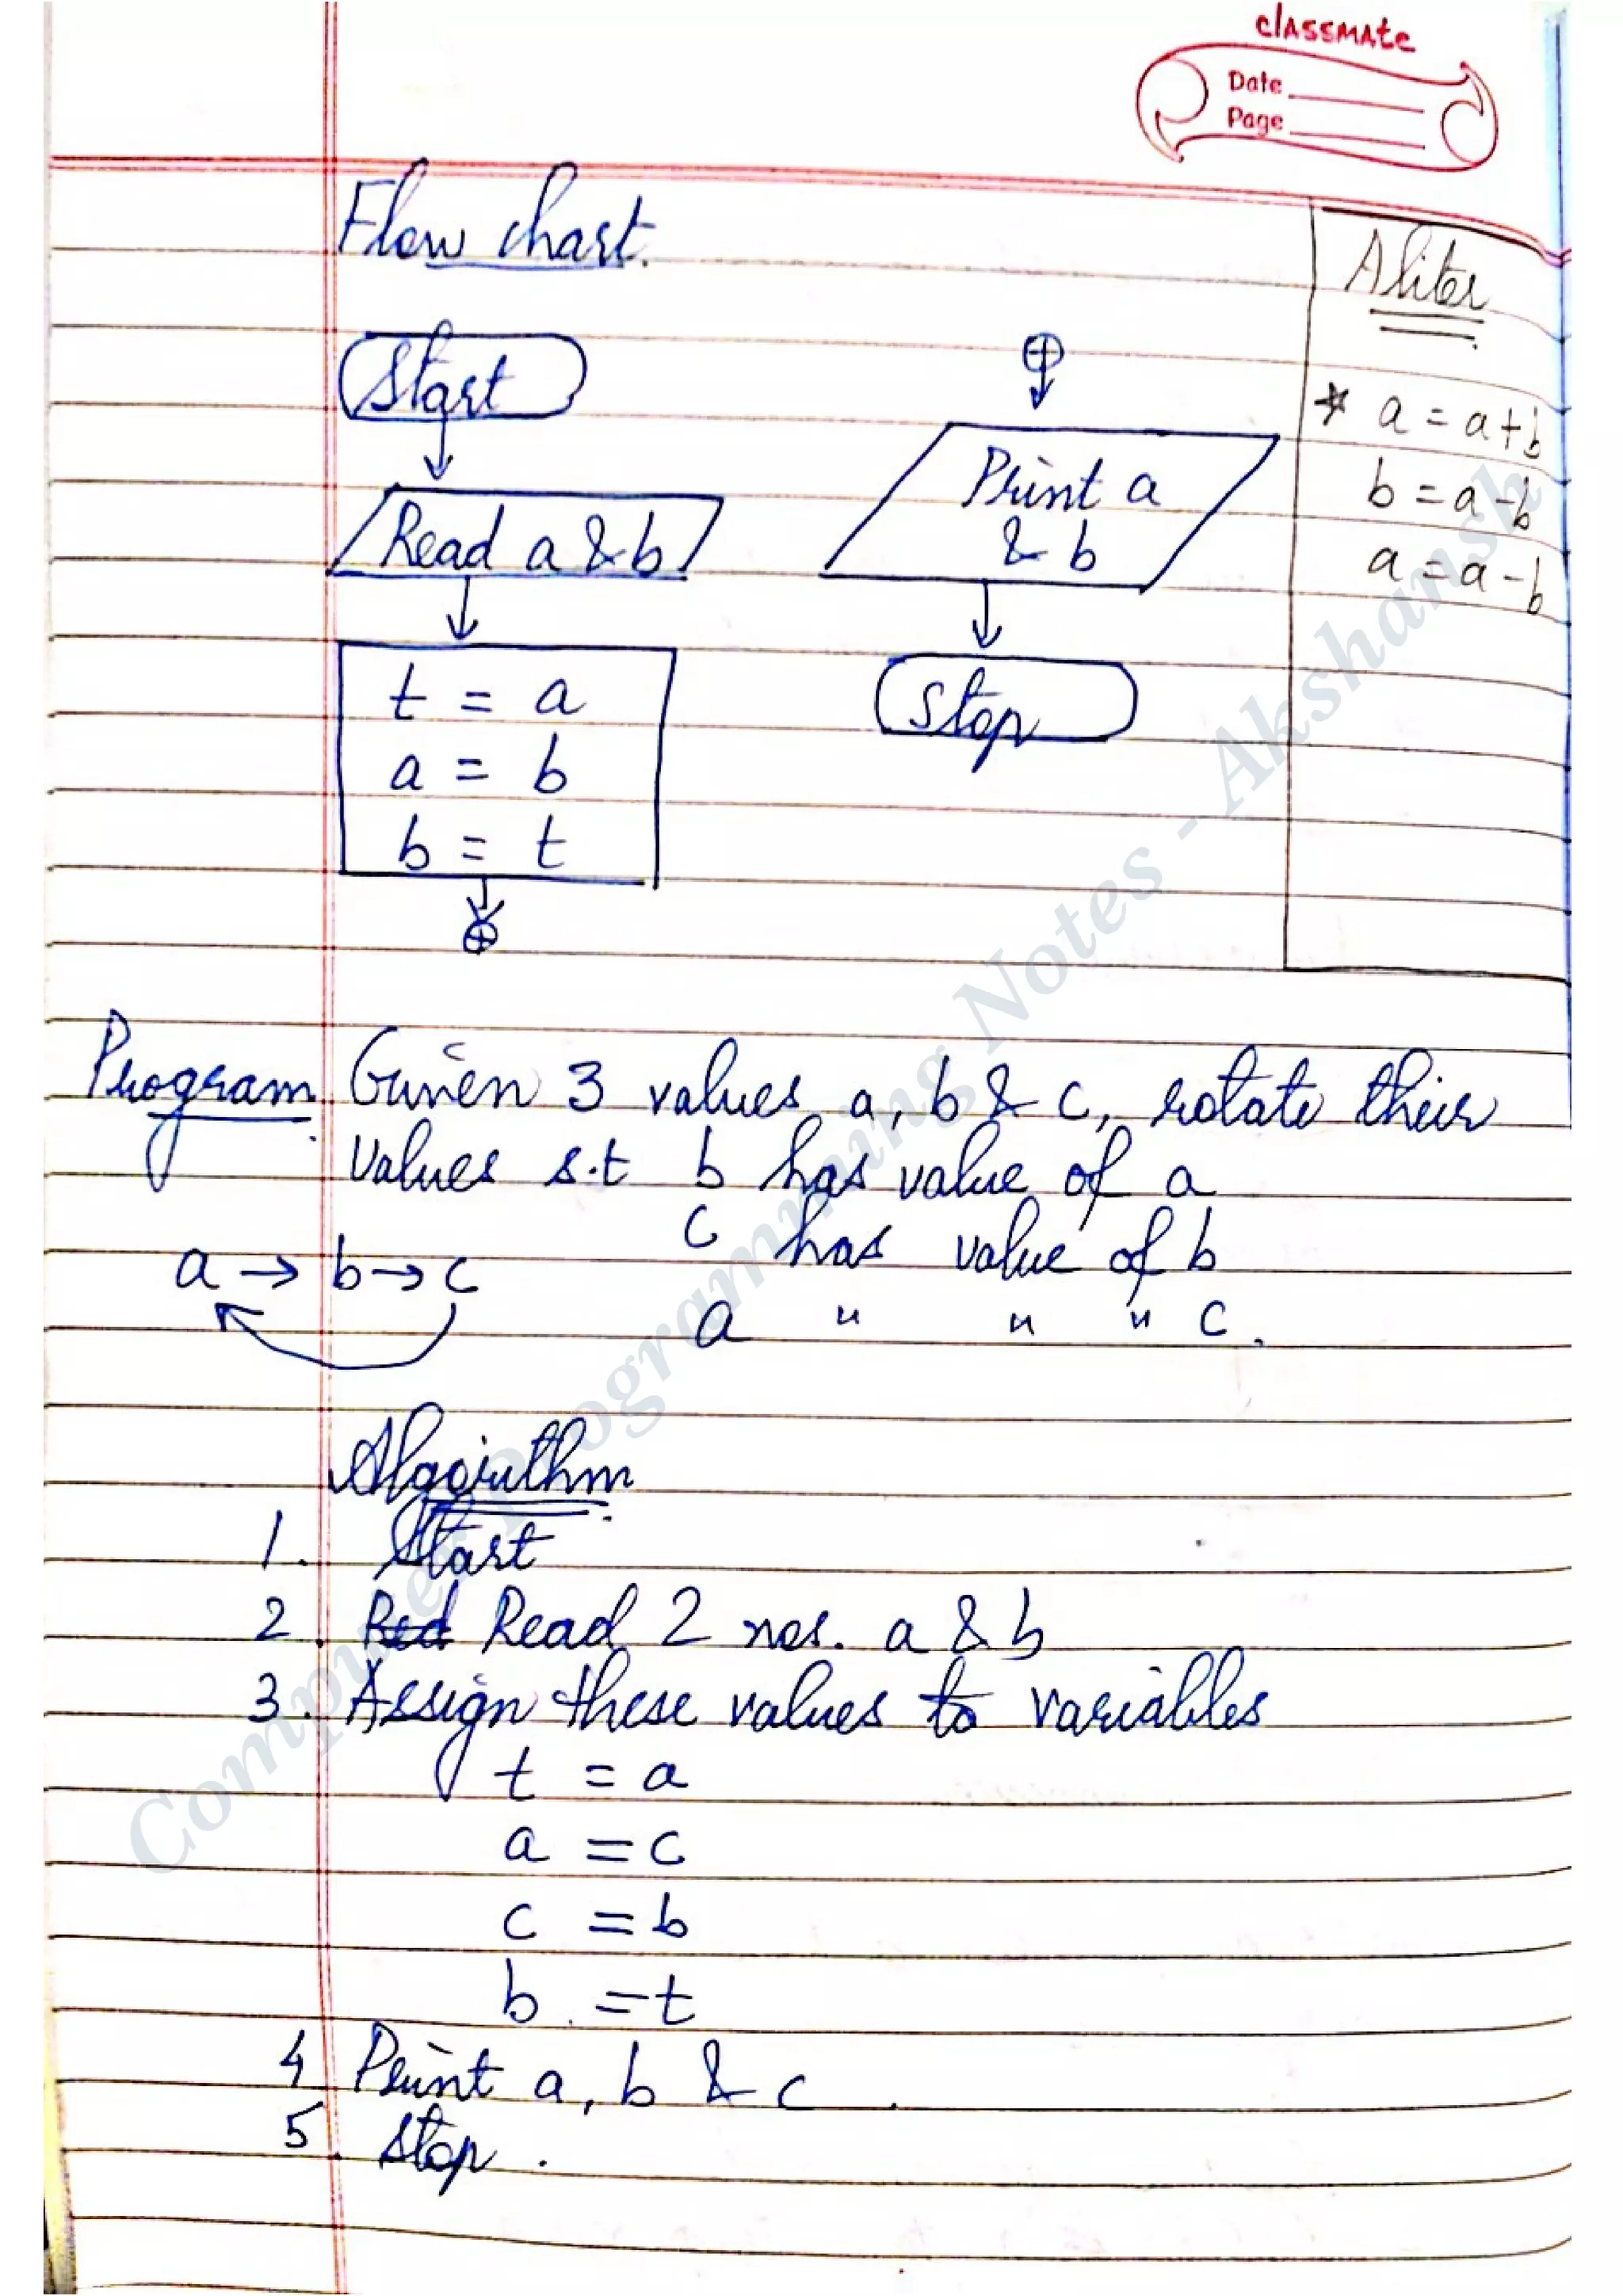 classmate
Date
Page
Flow chart.
Start
Read a & b
t = a
a = b
b = t
Print a
& b
Stop
Aliter
* a = a+b
b = a-b
a = a-b
Program. Given 3 values a, b & c, rotate their
values s.t b has value of a
c has value of b
a → b → c
a " " " c.
Algorithm
1. Start
2. Red Read 2 nos. a & b
3. Assign these values to variables
t = a
a = c
c = b
b = t
4 Print a, b & c.
5. Stop.
Computer Programming Notes - Akshansh